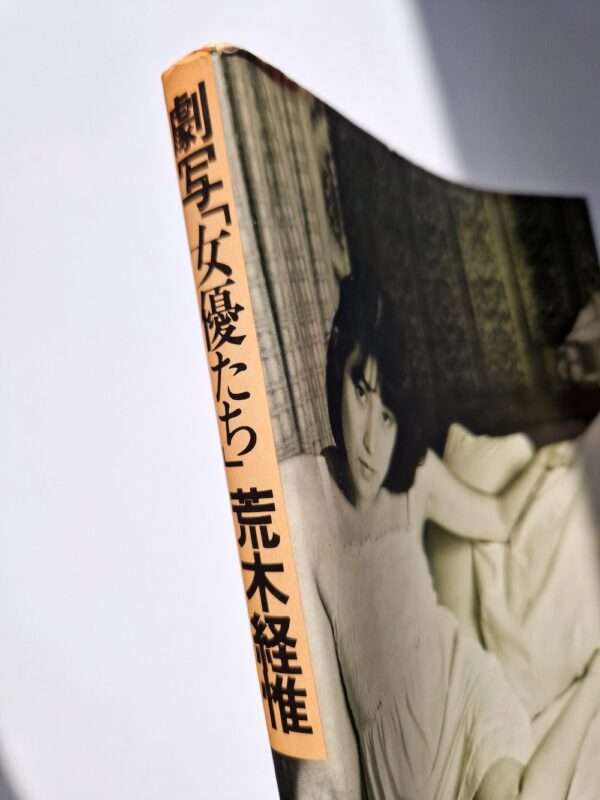 劇写「女優たち」 荒木経惟